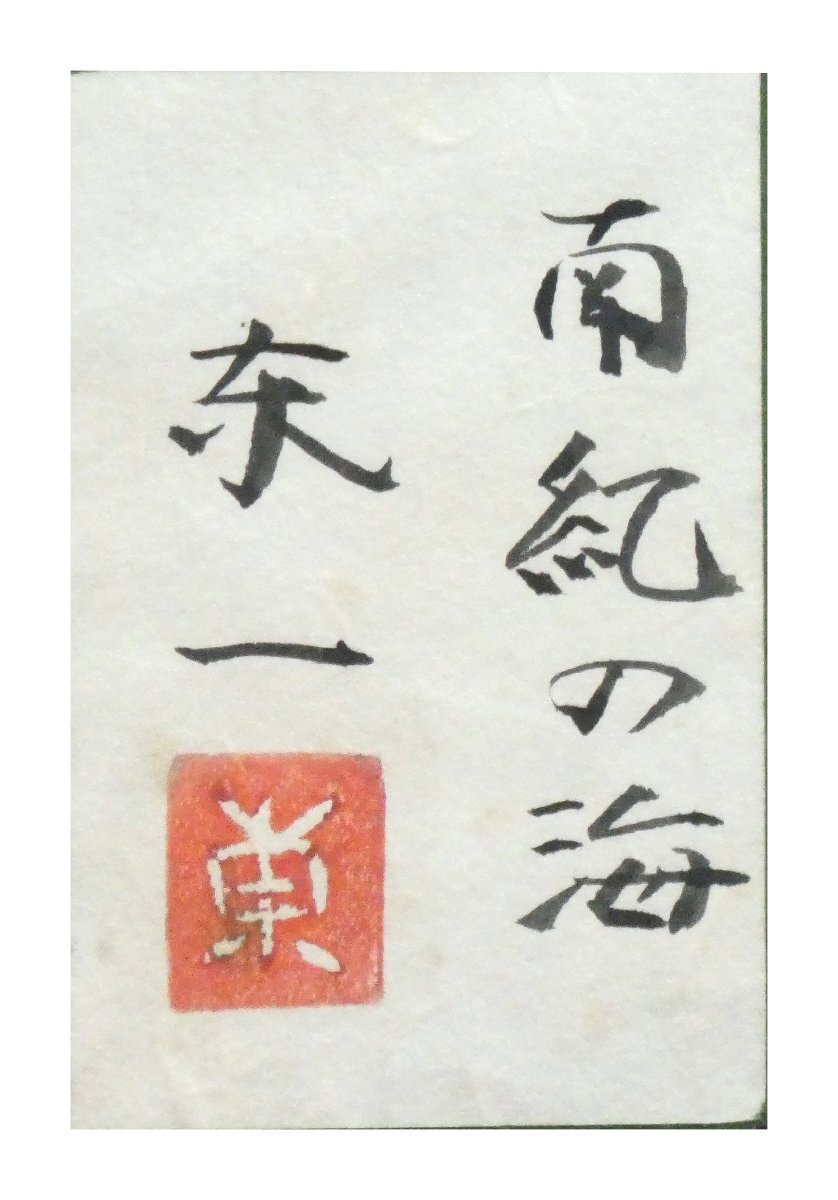 南紀の海
東一
東